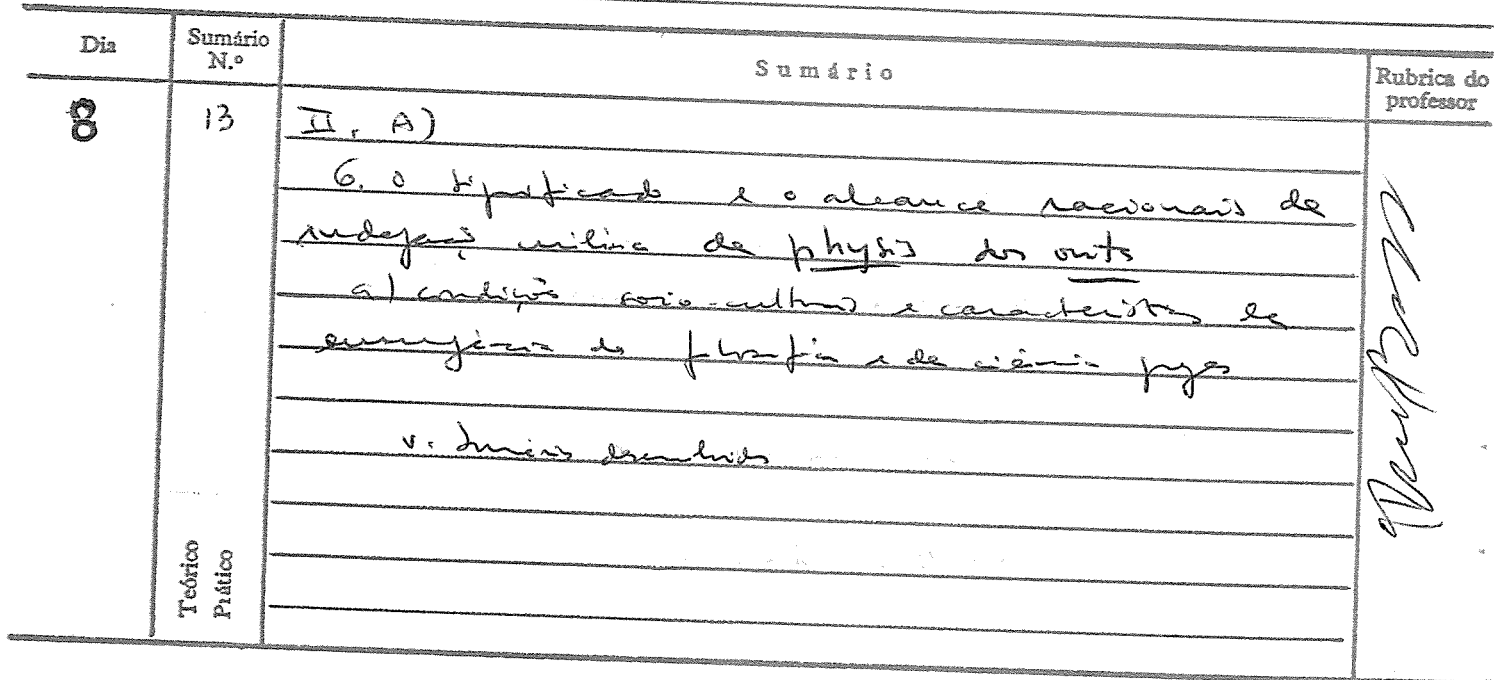 Dia
Sumário N.º
Sumário
Rubrica do professor
8
13
II. A)
6. O significado e o alcance racionais da
indagação milésia da physis dos onta
a) condições socio-culturais e características da
emergência da filosofia e da ciência gregas
v. Sumários desenvolvidos
Teórico
Prático